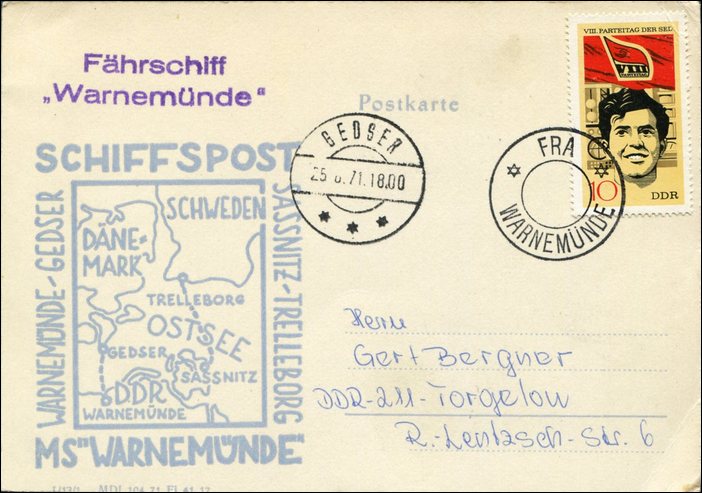 Fährschiff
„Warnemünde"
Postkarte
VIII. PARTEITAG DER SED
VIII
PARTEITAG
10
DDR
GEDSER
25 6.71.18.00
FRA
WARNEMÜNDE
SCHIFFSPOST
WARNEMÜNDE-GEDSER
SASSNITZ-TRELLEBORG
SCHWEDEN
DÄNE-
MARK
TRELLEBORG
OSTSEE
GEDSER
SASSNITZ
DDR
WARNEMÜNDE
MS"WARNEMÜNDE"
Herrn
Gert Bergner
DDR-211-Torgelow
Str. 6